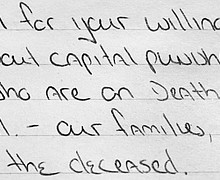 for your willing
out capital punish
ho are on Death
l. - our families,
the deceased.